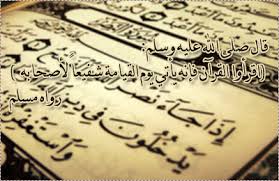 قال صلى الله عليه وسلم:
((اقرأوا القرآن فإنه يأتي يوم القيامة شفيعاً لأصحابه))
رواه مسلم
إِذَا جَاءَ نَصْرُ
يَدْخُلُونَ فِي دِينِ